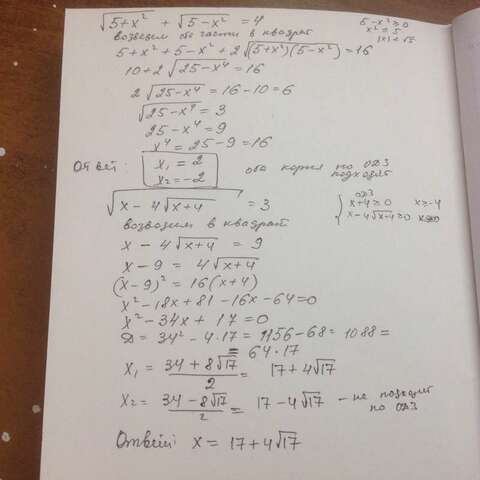 √(5+x²) + √(5-x²) = 4
5-x² ≥ 0
x² ≤ 5
возведем обе части в квадрат
5+x² + 5-x² + 2√((5+x²)(5-x²)) = 16
10+2 √(25-x⁴) = 16
2 √(25-x⁴) = 16-10 = 6
√(25-x⁴) = 3
25-x⁴ = 9
x⁴ = 25-9 = 16
Ответ: x₁ = 2
x₂ = -2
оба корня по ОДЗ
подходят
√(x - 4√(x+4)) = 3
ОДЗ
x+4 ≥ 0 x ≥ -4
x-4√(x+4) ≥ 0
возводим в квадрат
x - 4√(x+4) = 9
x-9 = 4√(x+4)
(x-9)² = 16(x+4)
x²-18x+81-16x-64=0
x²-34x+17=0
D = 34²-4·17 = 1156-68 = 1088 =
= 64·17
x₁ = (34+8√17)/2 = 17+4√17
x₂ = (34-8√17)/2 = 17-4√17 - не подходит
по ОДЗ
Ответ: x = 17+4√17